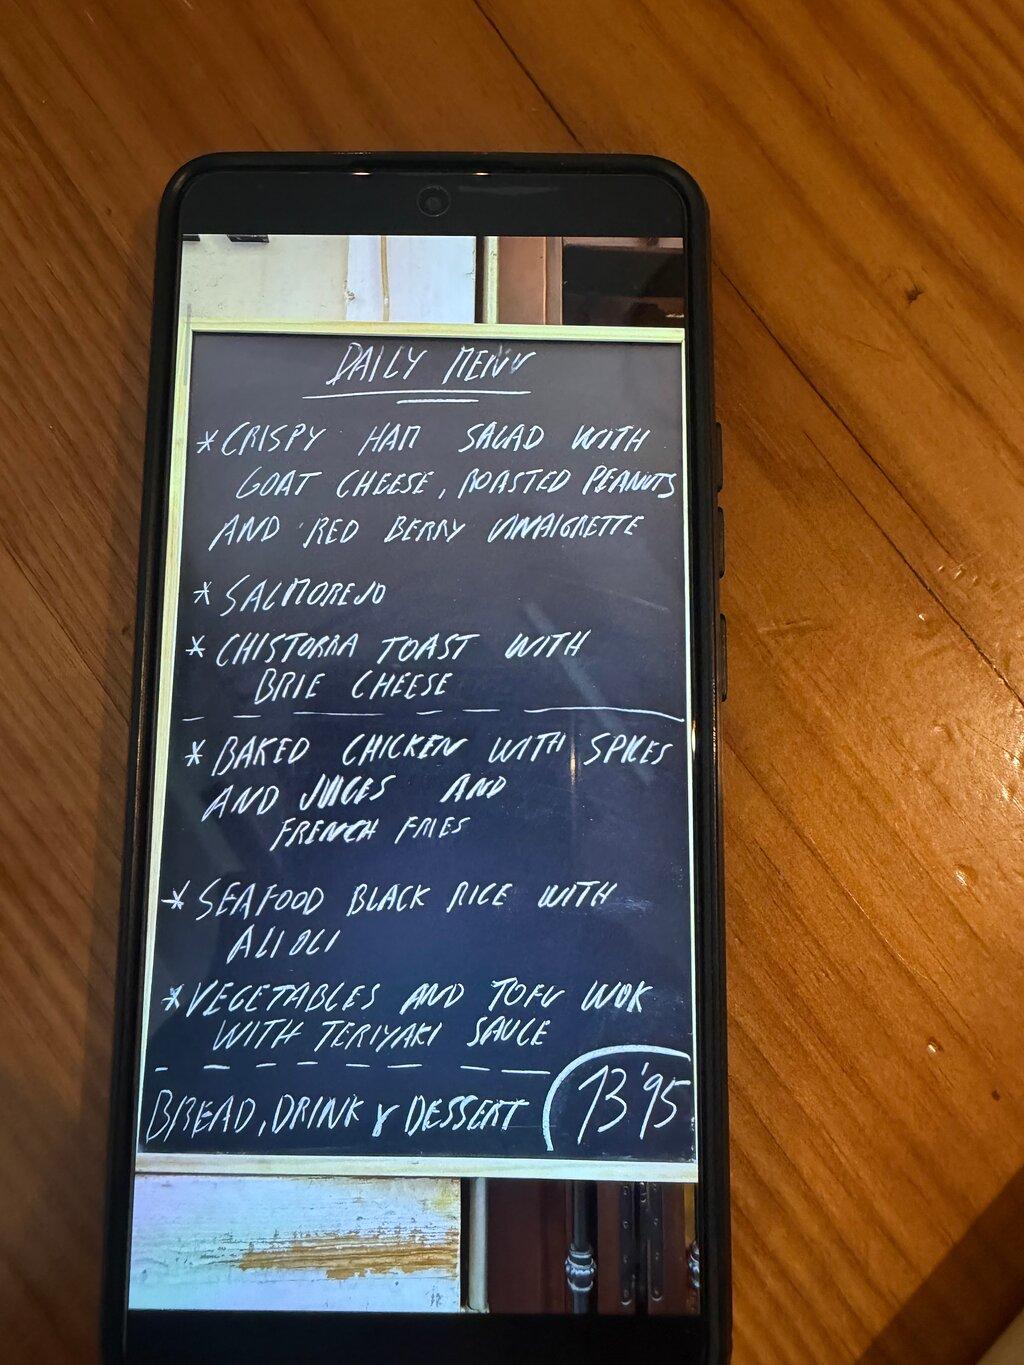 DAILY MENU
* CRISPY HAM SALAD WITH
GOAT CHEESE, ROASTED PEANUTS
AND RED BERRY VINAIGRETTE
* SALMOREJO
* CHISTORRA TOAST WITH
BRIE CHEESE
* BAKED CHICKEN WITH SPICES
AND JUICES AND
FRENCH FRIES
* SEAFOOD BLACK RICE WITH
ALI OLI
* VEGETABLES AND TOFU WOK
WITH TERIYAKI SAUCE
BREAD, DRINK Y DESSERT 13'95